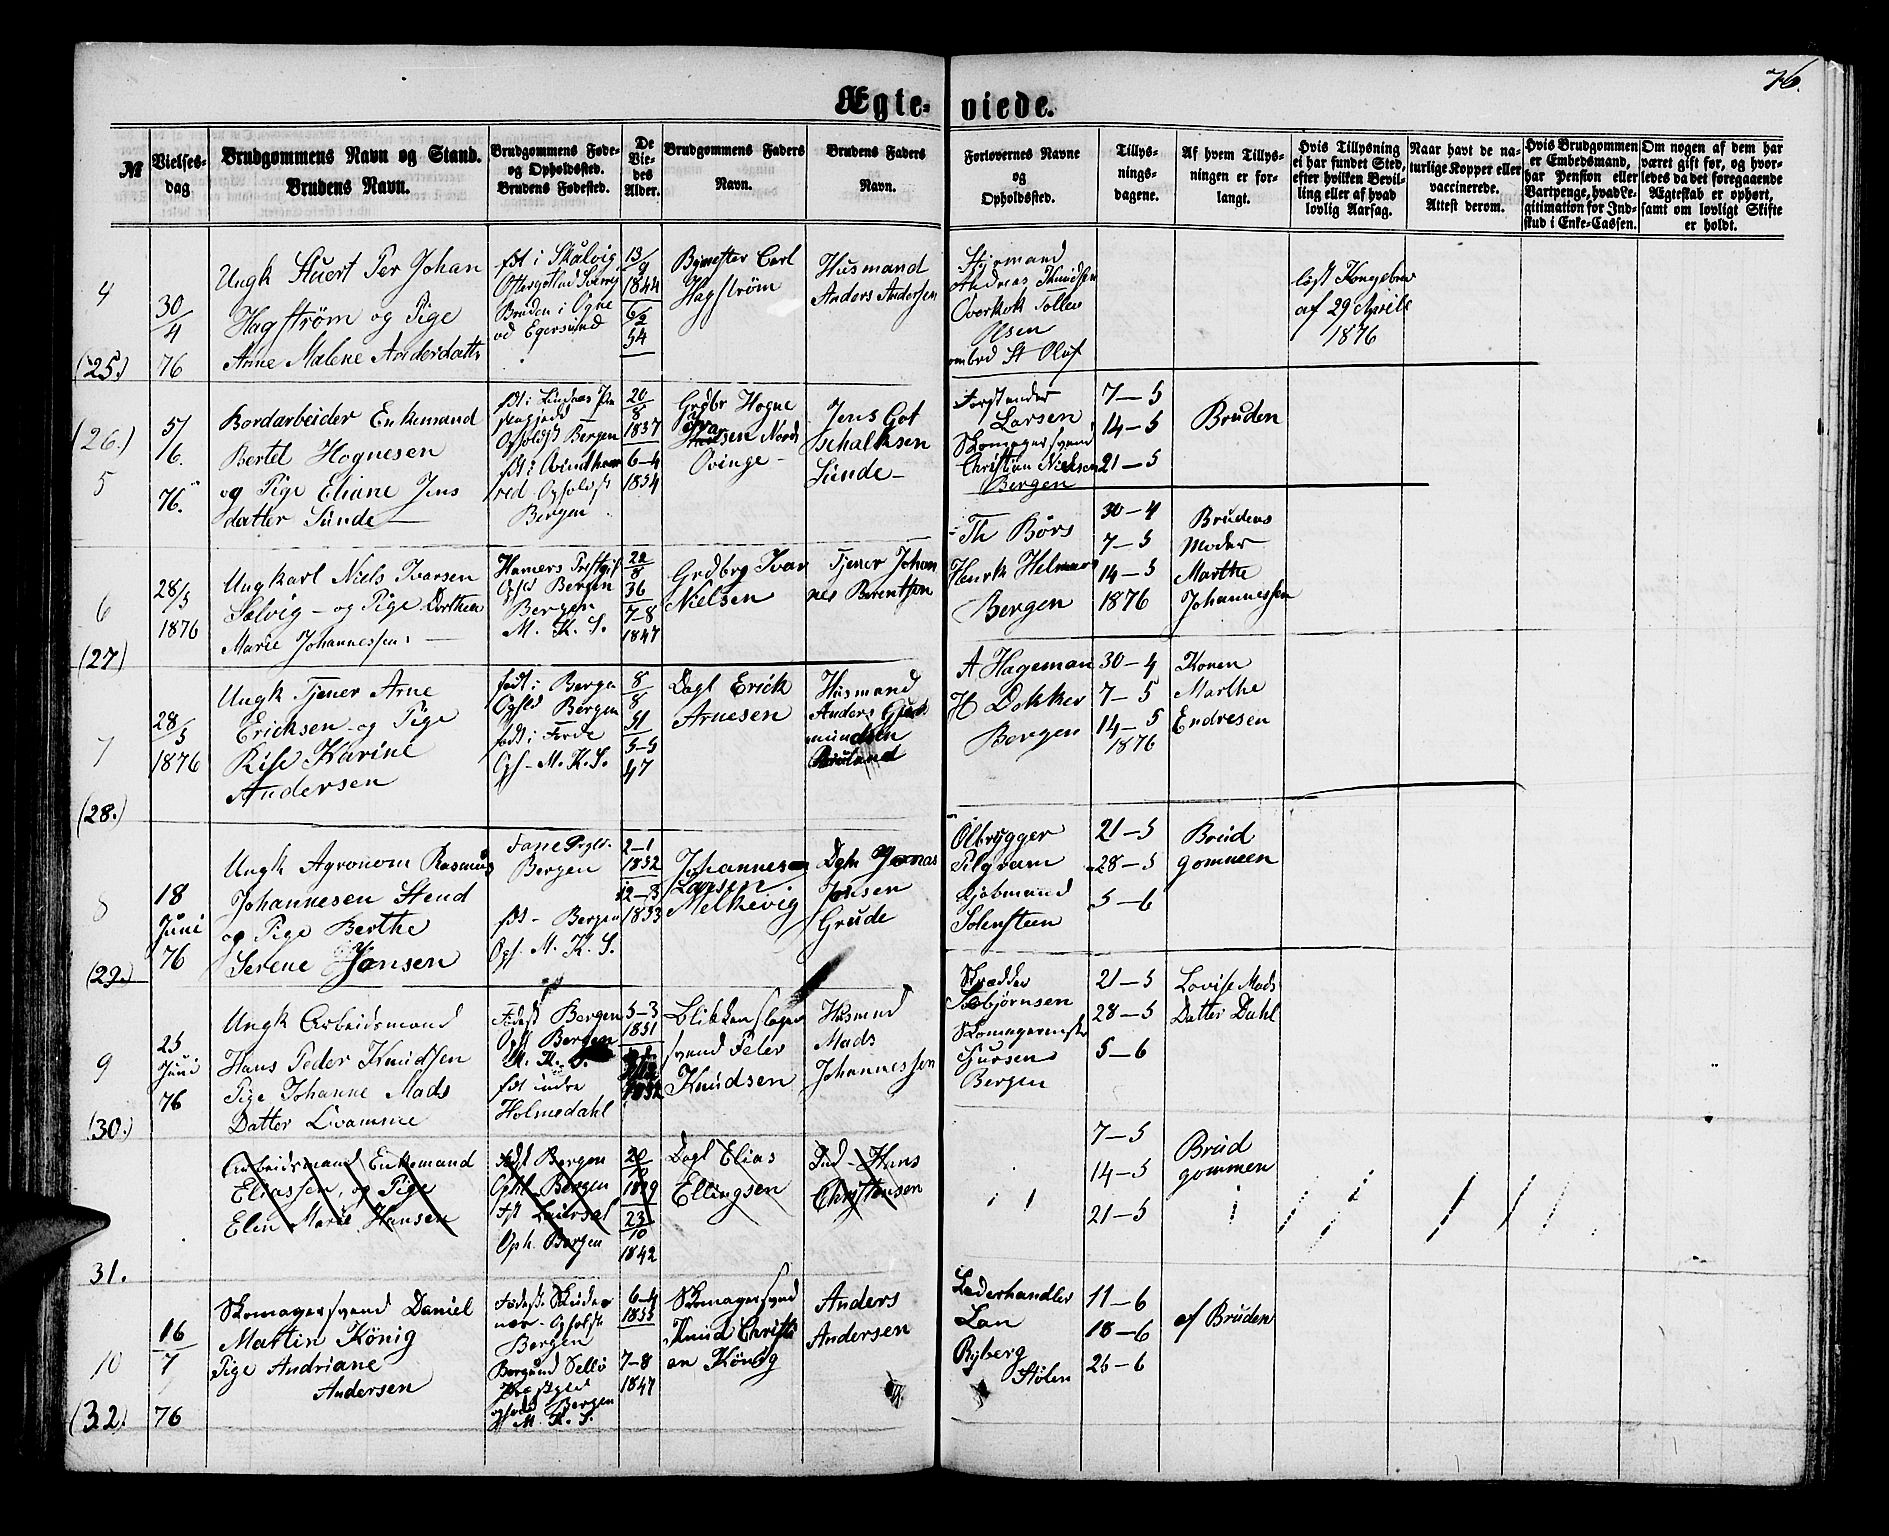 76.
Ægte-viede.
№
Vielses-
dag
Brudgommens Navn og Stand.
Brudens Navn.
Brudgommens Føde-
og Opholdssted.
Brudens Fødested.
De
Vie-
des
Alder.
Brudgommens Faders
Navn.
Brudens Faders
Navn.
Forlovernes Navne
og
Opholdssted.
Tillys-
nings-
dagene.
Af hvem Tillys-
ningen er for-
langt.
Hvis Tillysning
ei har fundet Sted,
efter hvilken Bevil-
ling eller af hvad
lovlig Aarsag.
Naar havt de na-
turlige Kopper eller
vaccinerede.
Attest derom.
Hvis Brudgommen
er Embedsmand,
har Pension eller
Vartpenge, hvad Le-
gitimation for Ind-
skud i Enke-Cassen.
Om nogen af dem har
været gift før, og hvor-
ledes da det foregaaende
Ægteskab er ophørt,
samt om lovligt Skifte
er holdt.
4
(25.)
30/4
76
Ungk Stuert Per Johan
Hagstrøm og Pige
Anne Malene Andersdatter
fdt i Skalvig
Bruden i Ogne
ved Egersund
13/9
1844
6/2
54
Bymester Carl
Hagstrøm
Husmand
Anders Andersen
Styrmand
Andreas Knudsen
Overkok Tollev
Olsen
ombrd St Oluf
løst Kongebrev
af 29 Aprils
1876
(26.)
5
5/
6.
76.
Bordarbeider Enkemand
Bertel Hognesen
og Pige Eliane Jens
datter Sunde
fdt i Lindaas Præ
stegjeld
Opholdst Bergen
fdt i Qvindher
red. Opholdst
Bergen
20/8
1837
6-4
1854
Grdbr Hogne
Nord
Qvinge
Jens Got
schalksen
Sunde
Forstander
Larsen
Skomagersvend
Christian Nielsen
Bergen
7-5
14-5
21-5
Bruden
6
(27)
28/5
1876
Ungkarl Niels Ivarsen
Sølvig - og Pige Dorthea
Marie Johannessen
Hamers Prstgjl
Ophld Bergen
Bergen
M. K. S.
22/8
36
7-8
1847
Grdbrg Ivar
Nielsen
Tjener Johan
nes Berentsen
Th Børs
Henrk Helmers
Bergen
30-4
7-5
14-5
1876
Brudens
Moder
Marthe
Johannessen
7
(28.)
28/5
1876
Ungk Tjener Arne
Ericksen og Pige
Rise Karine
Andersen
født i Bergen
Ophld Bergen
født i Førde
Oph- M. K. S.
8/8
51
5-5
47
Dagl Erick
Arnesen
Husmand
Anders Gud
mundsen
Bruland
A Hageman
H Dekker
Bergen
30-4
7-5
14-5
1876
Konen
Marthe
Endresen
8
(29.)
18
Juni
76
Ungk Agronom Rasmus
Johannesen Stend
og Pige Berthe
Serene Jonsen
Fane Ophld.
Bergen
fdt- Bergen
Oph- M. K. S.
2-1
1852
12-8
1853
Johannes
Larsen
Melkevig
Dgln Jonas
Jonsen
Grude
Ølbrygger
Pilgram
Kjøbmand
Solensteen
21-5
28-5
5-6
Brud
gommeen
9
(30.)
25
Juni
76
Ungk Arbeidsmand
Hans Peder Knudsen
Pige Johanne Mads
Datter Lvamme
Fødest Bergen
Oph Bergen
M. K. S.
fdt indre
Holmedahl
5-3
1851
1852
Blikkenslager
svend Peter
Knudsen
Husmnd
Mads
Johannessen
Skrædder
Torbjørnsen
Skomagermester
Sjursen
Bergen
21-5
28-5
5-6
Lovise Mads
Datter Dahl
31.
Arbeidsmand Enkemand
Eliassen, og Pige
Elen Marie Hansen
Født Bergen
Ophl Bergen
Oph. Bergen
20/10
1839
23/10
1842
Dagl Elias
Ellingsen
Ind- Hans
Christensen
7-5
14-5
21-5
Brud
gommen
10
(32.)
16/7
76
Skomagersvend Daniel
Martin König
Pige Andriane
Andersen
Fødest Skude
næs- Opholdst
Bergen
Borgund Sello
Præstgld
ophold Bergen
M. K. S.
6-4
1855
7-8
1847
Skomagersvend
Knud Christi
an König
Anders
Andersen
Læderhandler
Lan
Ryberg
Stølen
11-6
18-6
26-6
af Bruden